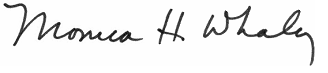 Monica H Whaley